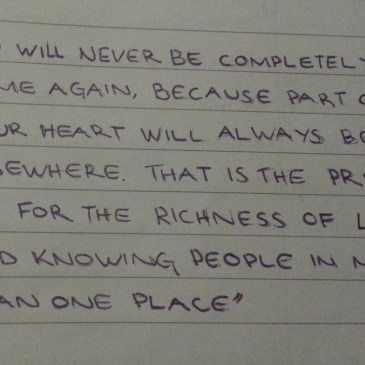 WILL NEVER BE COMPLETELY
ME AGAIN, BECAUSE PART O
UR HEART WILL ALWAYS BE
SEWHERE. THAT IS THE PRI
FOR THE RICHNESS OF L
D KNOWING PEOPLE IN M
AN ONE PLACE"